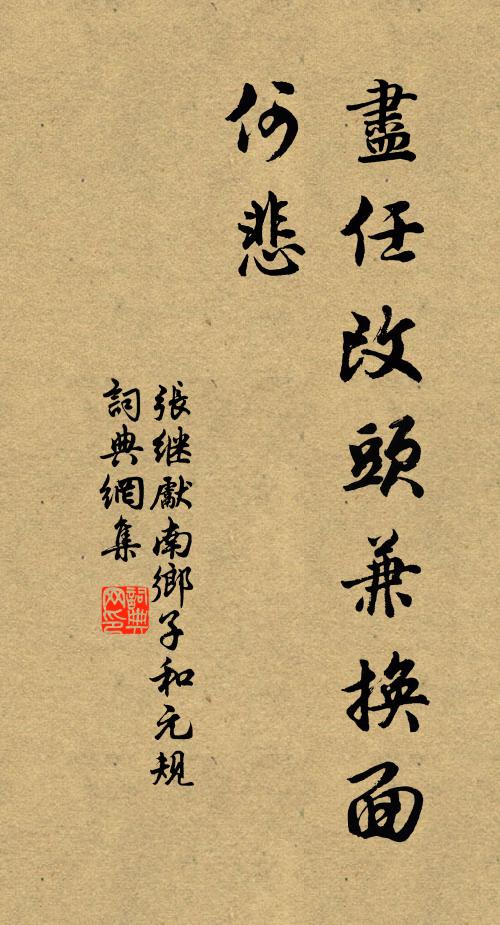 盡任改頭兼換面
何悲
張继獻南鄉子和元規
詞典網集
詞典网印